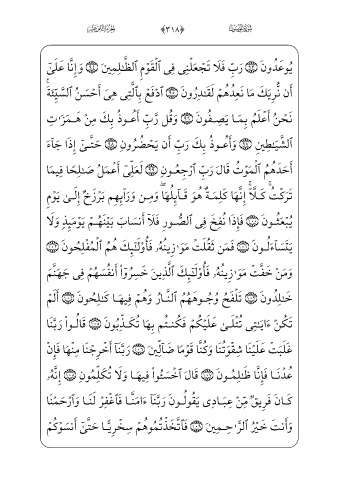 سورة المؤمنون ﴿٣١٨﴾ الجزء الثامن عشر
يُوعَدُونَ ﴿٩٣﴾ رَبِّ فَلَا تَجْعَلْنِى فِى ٱلْقَوْمِ ٱلظَّـٰلِمِينَ ﴿٩٤﴾ وَإِنَّا عَلَىٰٓ
أَن نُّرِيَكَ مَا نَعِدُهُمْ لَقَـٰدِرُونَ ﴿٩٥﴾ ٱدْفَعْ بِٱلَّتِى هِىَ أَحْسَنُ ٱلسَّيِّئَةَ ۚ
نَحْنُ أَعْلَمُ بِمَا يَصِفُونَ ﴿٩٦﴾ وَقُل رَّبِّ أَعُوذُ بِكَ مِنْ هَمَزَٰتِ
ٱلشَّيَـٰطِينِ ﴿٩٧﴾ وَأَعُوذُ بِكَ رَبِّ أَن يَحْضُرُونِ ﴿٩٨﴾ حَتَّىٰٓ إِذَا جَآءَ
أَحَدَهُمُ ٱلْمَوْتُ قَالَ رَبِّ ٱرْجِعُونِ ﴿٩٩﴾ لَعَلِّىٓ أَعْمَلُ صَـٰلِحًا فِيمَا
تَرَكْتُ ۚ كَلَّآ ۚ إِنَّهَا كَلِمَةٌ هُوَ قَآئِلُهَا ۖ وَمِن وَرَآئِهِم بَرْزَخٌ إِلَىٰ يَوْمِ
يُبْعَثُونَ ﴿١٠٠﴾ فَإِذَا نُفِخَ فِى ٱلصُّورِ فَلَآ أَنسَابَ بَيْنَهُمْ يَوْمَئِذٍ وَلَا
يَتَسَآءَلُونَ ﴿١٠١﴾ فَمَن ثَقُلَتْ مَوَٰزِينُهُۥ فَأُو۟لَـٰٓئِكَ هُمُ ٱلْمُفْلِحُونَ ﴿١٠٢﴾
وَمَنْ خَفَّتْ مَوَٰزِينُهُۥ فَأُو۟لَـٰٓئِكَ ٱلَّذِينَ خَسِرُوٓا۟ أَنفُسَهُمْ فِى جَهَنَّمَ
خَـٰلِدُونَ ﴿١٠٣﴾ تَلْفَحُ وُجُوهَهُمُ ٱلنَّارُ وَهُمْ فِيهَا كَـٰلِحُونَ ﴿١٠٤﴾ أَلَمْ
تَكُنْ ءَايَـٰتِى تُتْلَىٰ عَلَيْكُمْ فَكُنتُم بِهَا تُكَذِّبُونَ ﴿١٠٥﴾ قَالُوا۟ رَبَّنَا
غَلَبَتْ عَلَيْنَا شِقْوَتُنَا وَكُنَّا قَوْمًا ضَآلِّينَ ﴿١٠٦﴾ رَبَّنَآ أَخْرِجْنَا مِنْهَا فَإِنْ
عُدْنَا فَإِنَّا ظَـٰلِمُونَ ﴿١٠٧﴾ قَالَ ٱخْسَـُٔوا۟ فِيهَا وَلَا تُكَلِّمُونِ ﴿١٠٨﴾ إِنَّهُۥ
كَانَ فَرِيقٌ مِّنْ عِبَادِى يَقُولُونَ رَبَّنَآ ءَامَنَّا فَٱغْفِرْ لَنَا وَٱرْحَمْنَا
وَأَنتَ خَيْرُ ٱلرَّٰحِمِينَ ﴿١٠٩﴾ فَٱتَّخَذْتُمُوهُمْ سِخْرِيًّا حَتَّىٰٓ أَنسَوْكُمْ